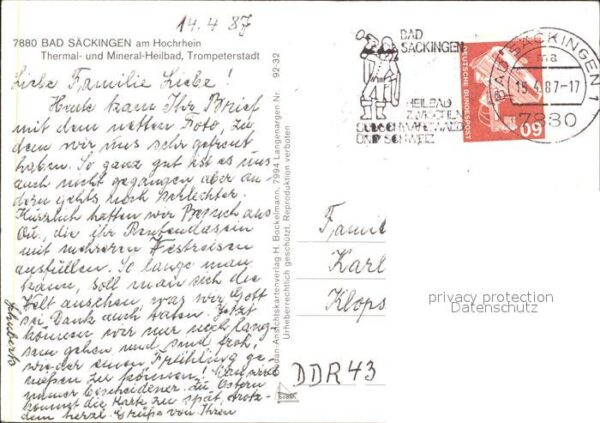 14.4.87
7880 BAD SÄCKINGEN am Hochrhein
Thermal- und Mineral-Heilbad, Trompeterstadt
Liebe Familie Liebe!
Heute kam Ihr Brief
mit dem netten Foto, zu
dem wir uns sehr gefreut
haben. So ganz gut ist es uns
auch nicht gegangen aber an-
dern gehts noch schlechter.
Kürzlich hatten wir Besuch aus
die ihr Rentendasein
mit mehreren Westreisen
ausfüllen. So lange man
kann, soll man sich die
Welt anschen, was wir Gott
sei Dank auch taten. Jetzt
können wir nur noch lang-
sam gehen und sind froh,
wieder einen Frühling ge-
nießen zu können! Man wird
immer bescheidener. Zu Ostern
kommt die Karte zu spät, trotz-
dem herzl. Grüße von Ihren
92-32
Ansichtskartenverlag H. Bockelmann, 7994 Langenargen Nr.
Urheberrechtlich geschützt. Reproduktion verboten
BAD
SÄCKINGEN
HEILBAD
ZWISCHEN
SÜDSCHWARZWALD
UND SCHWEIZ
DEUTSCHE BUNDESPOST
60
BAD SÄCKINGEN 1
ma
15.4.87-17
7880
Famil
Karl
Klops
DDR 43
privacy protection
Datenschutz